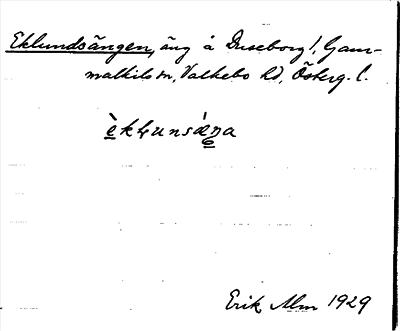 Eklundsängen, äng å Duseborg!, Gam-
malkils sn, Valkebo hd, Österg. l.
èkłunsáŋa
Erik Alm 1929